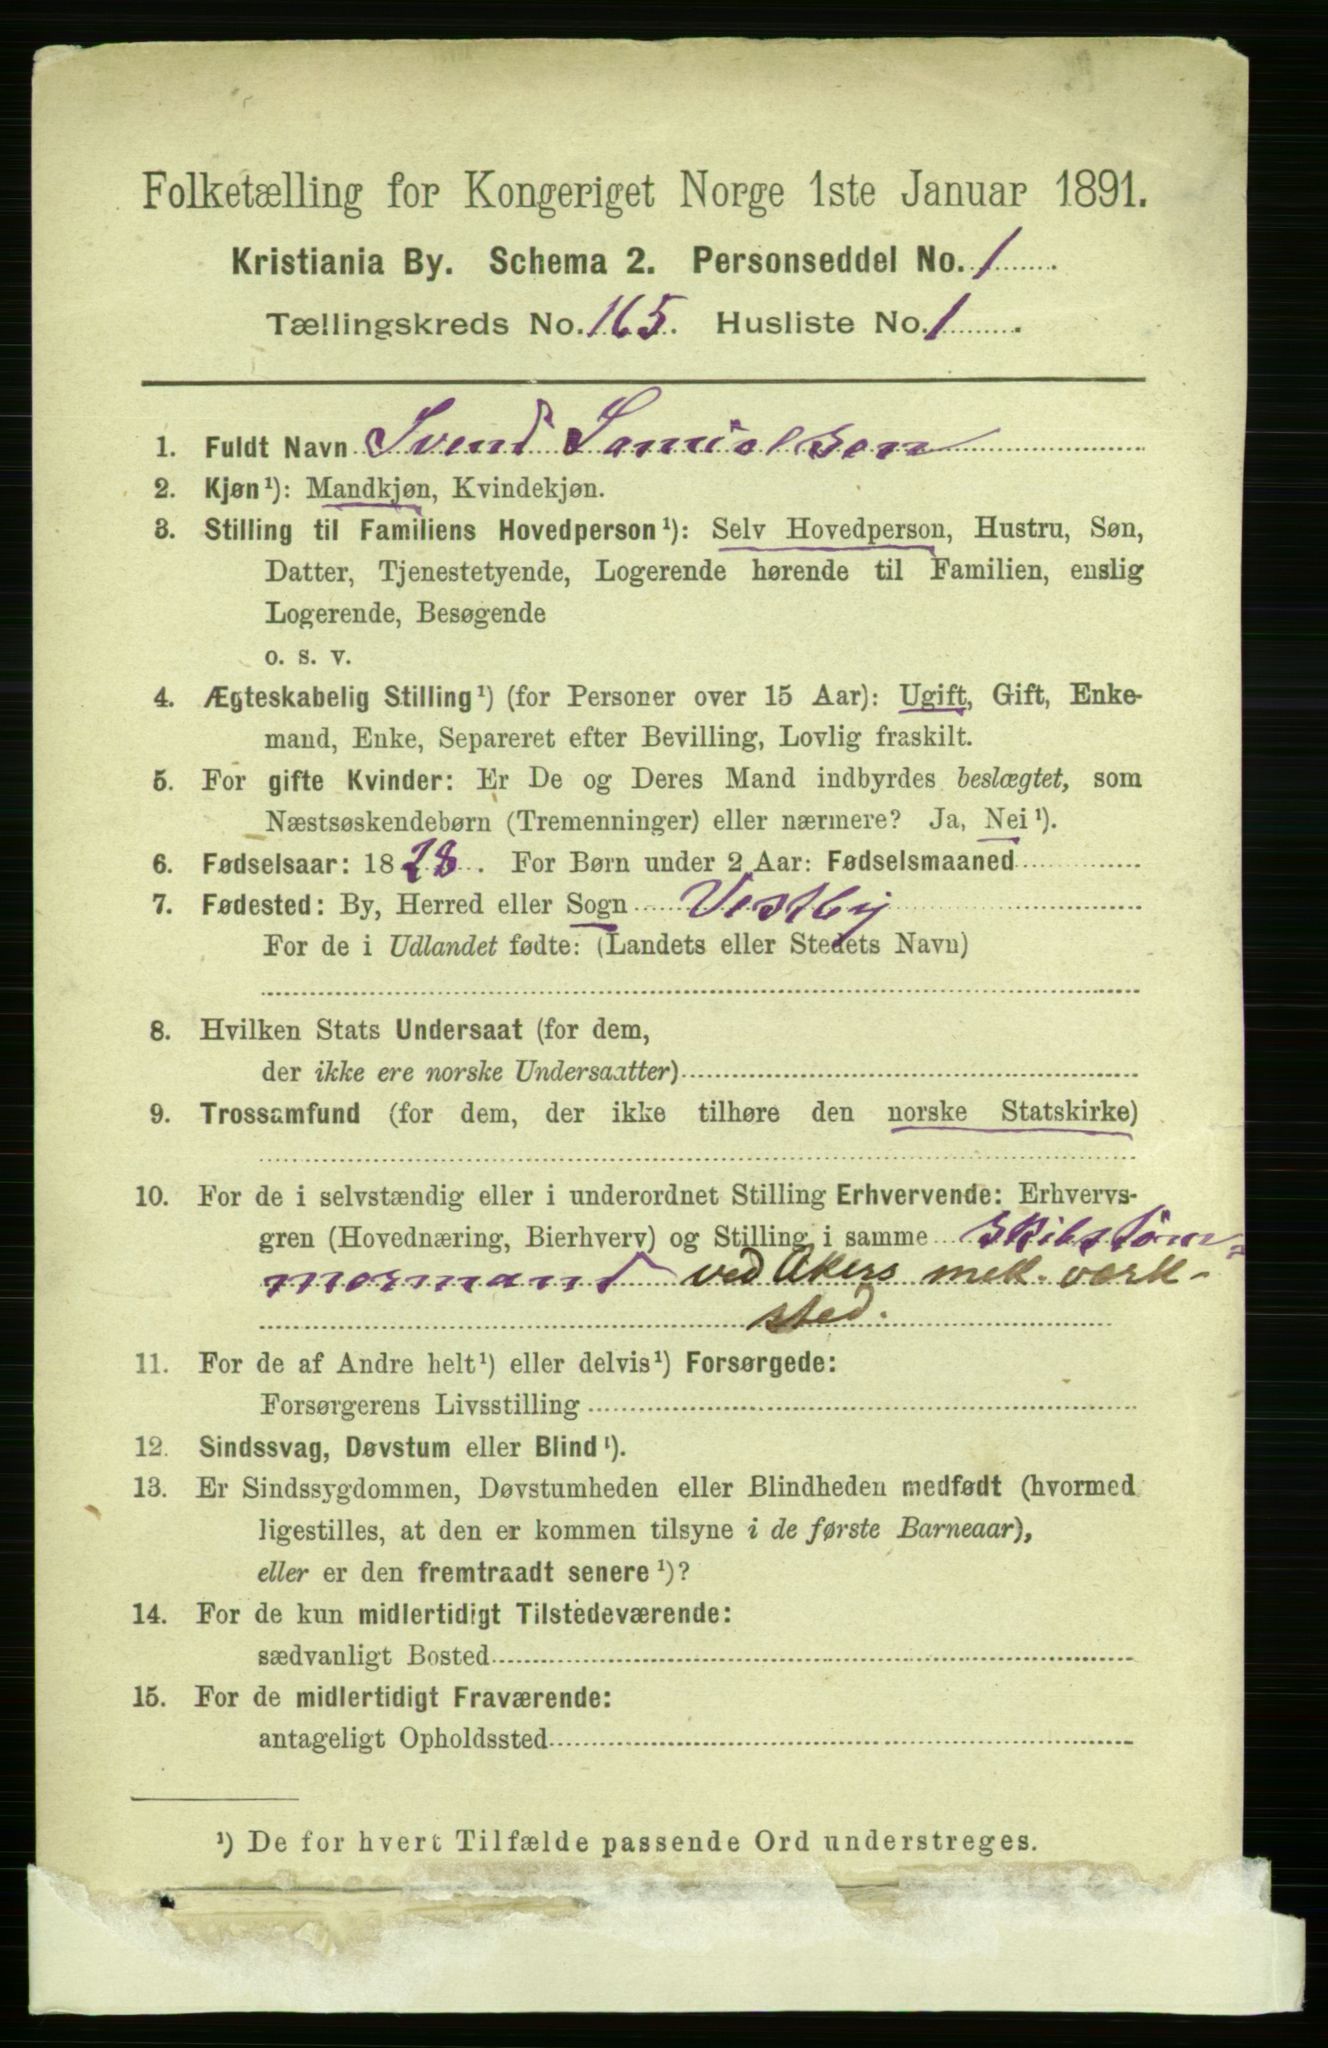 Folketælling for Kongeriget Norge 1ste Januar 1891.
Kristiania By. Schema 2. Personseddel No. 1
Tællingskreds No. 165. Husliste No. 1
1. Fuldt Navn Svend Samuelsen
2. Kjøn¹): Mandkjøn, Kvindekjøn.
3. Stilling til Familiens Hovedperson¹): Selv Hovedperson, Hustru, Søn,
Datter, Tjenestetyende, Logerende hørende til Familien, enslig
Logerende, Besøgende
o. s. v.
4. Ægteskabelig Stilling¹) (for Personer over 15 Aar): Ugift, Gift, Enke-
mand, Enke, Separeret efter Bevilling, Lovlig fraskilt.
5. For gifte Kvinder: Er De og Deres Mand indbyrdes beslægtet, som
Næstsøskendebørn (Tremenninger) eller nærmere? Ja, Nei¹).
6. Fødselsaar: 1828. For Børn under 2 Aar: Fødselsmaaned
7. Fødested: By, Herred eller Sogn Vestby
For de i Udlandet fødte: (Landets eller Stedets Navn)
8. Hvilken Stats Undersaat (for dem,
der ikke ere norske Undersaatter)
9. Trossamfund (for dem, der ikke tilhøre den norske Statskirke)
10. For de i selvstændig eller i underordnet Stilling Erhvervende: Erhvervs-
gren (Hovednæring, Bierhverv) og Stilling i samme Skibstöm=
mermand ved Akers mek. værk-
sted.
11. For de af Andre helt¹) eller delvis¹) Forsørgede:
Forsørgerens Livsstilling
12. Sindssvag, Døvstum eller Blind¹).
13. Er Sindssygdommen, Døvstumheden eller Blindheden medfødt (hvormed
ligestilles, at den er kommen tilsyne i de første Barneaar),
eller er den fremtraadt senere¹)?
14. For de kun midlertidigt Tilstedeværende:
sædvanligt Bosted
15. For de midlertidigt Fraværende:
antageligt Opholdssted
¹) De for hvert Tilfælde passende Ord understreges.